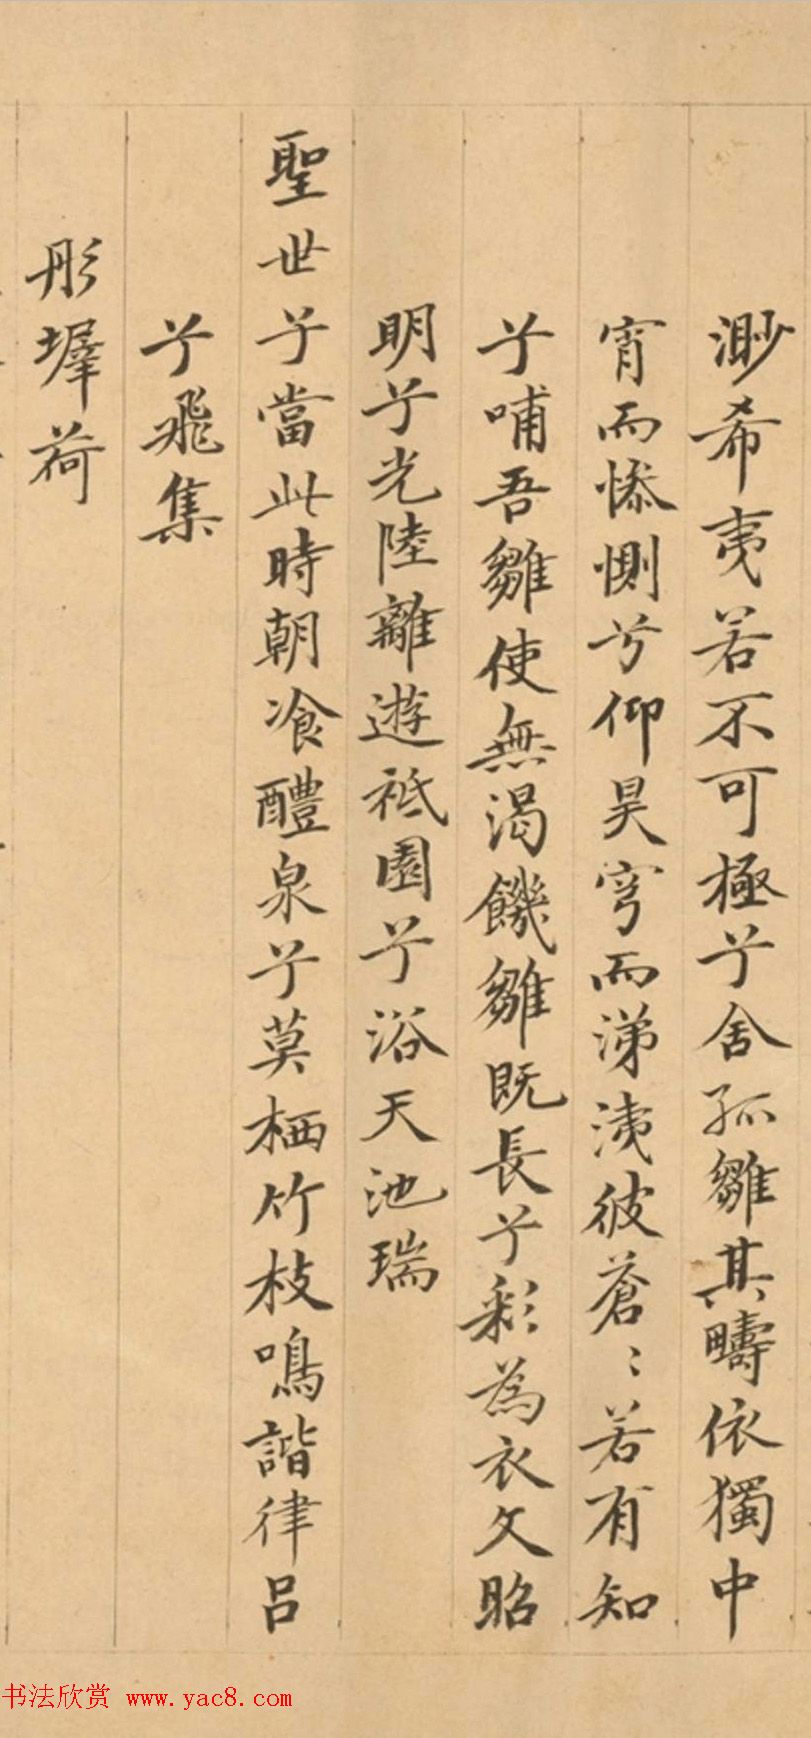 渺希夷若不可極兮舍孤雛其疇依獨中
宵而慘惻兮仰昊穹而涕洟彼蒼〻若有知
兮哺吾雛使無渴饑雛既長兮彩為衣文昭
明兮光陸離遊祇園兮浴天池瑞
聖世兮當此時朝飡醴泉兮莫栖竹枝鳴諧律呂
兮飛集
彤墀荷
书法欣赏 www.yac8.com